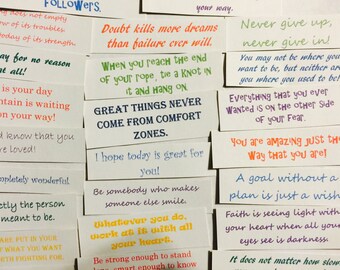 FOLLOWERS.
your way.
does not empty
of its troubles.
today of its strength.
Doubt kills more dreams
than failure ever will.
Never give up,
never give in!
for no reason
at all!
When you reach the end
of your rope, tie a knot in
it and hang on.
You may not be where you
want to be, but neither are
you where you used to be!
is your day
mountain is waiting
on your way!
GREAT THINGS NEVER
COME FROM COMFORT
ZONES.
Everything that you ever
Wanted is on the other side
of your Fear.
and know that you
are loved!
I hope today is great for
you!
You are amazing just the
Way that you are!
completely wonderful
Be somebody who makes
someone else smile.
A goal without a
plan is just a wish
exactly the person
meant to be.
Whatever you do,
work at it with all
your heart.
Faith is seeing light with
your heart when all your
eyes see is darkness.
ARE PUT IN YOUR
WHAT YOU WANT
WORTH FIGHTING FOR.
Be strong enough to stand
smart enough to know
It does not matter how slow